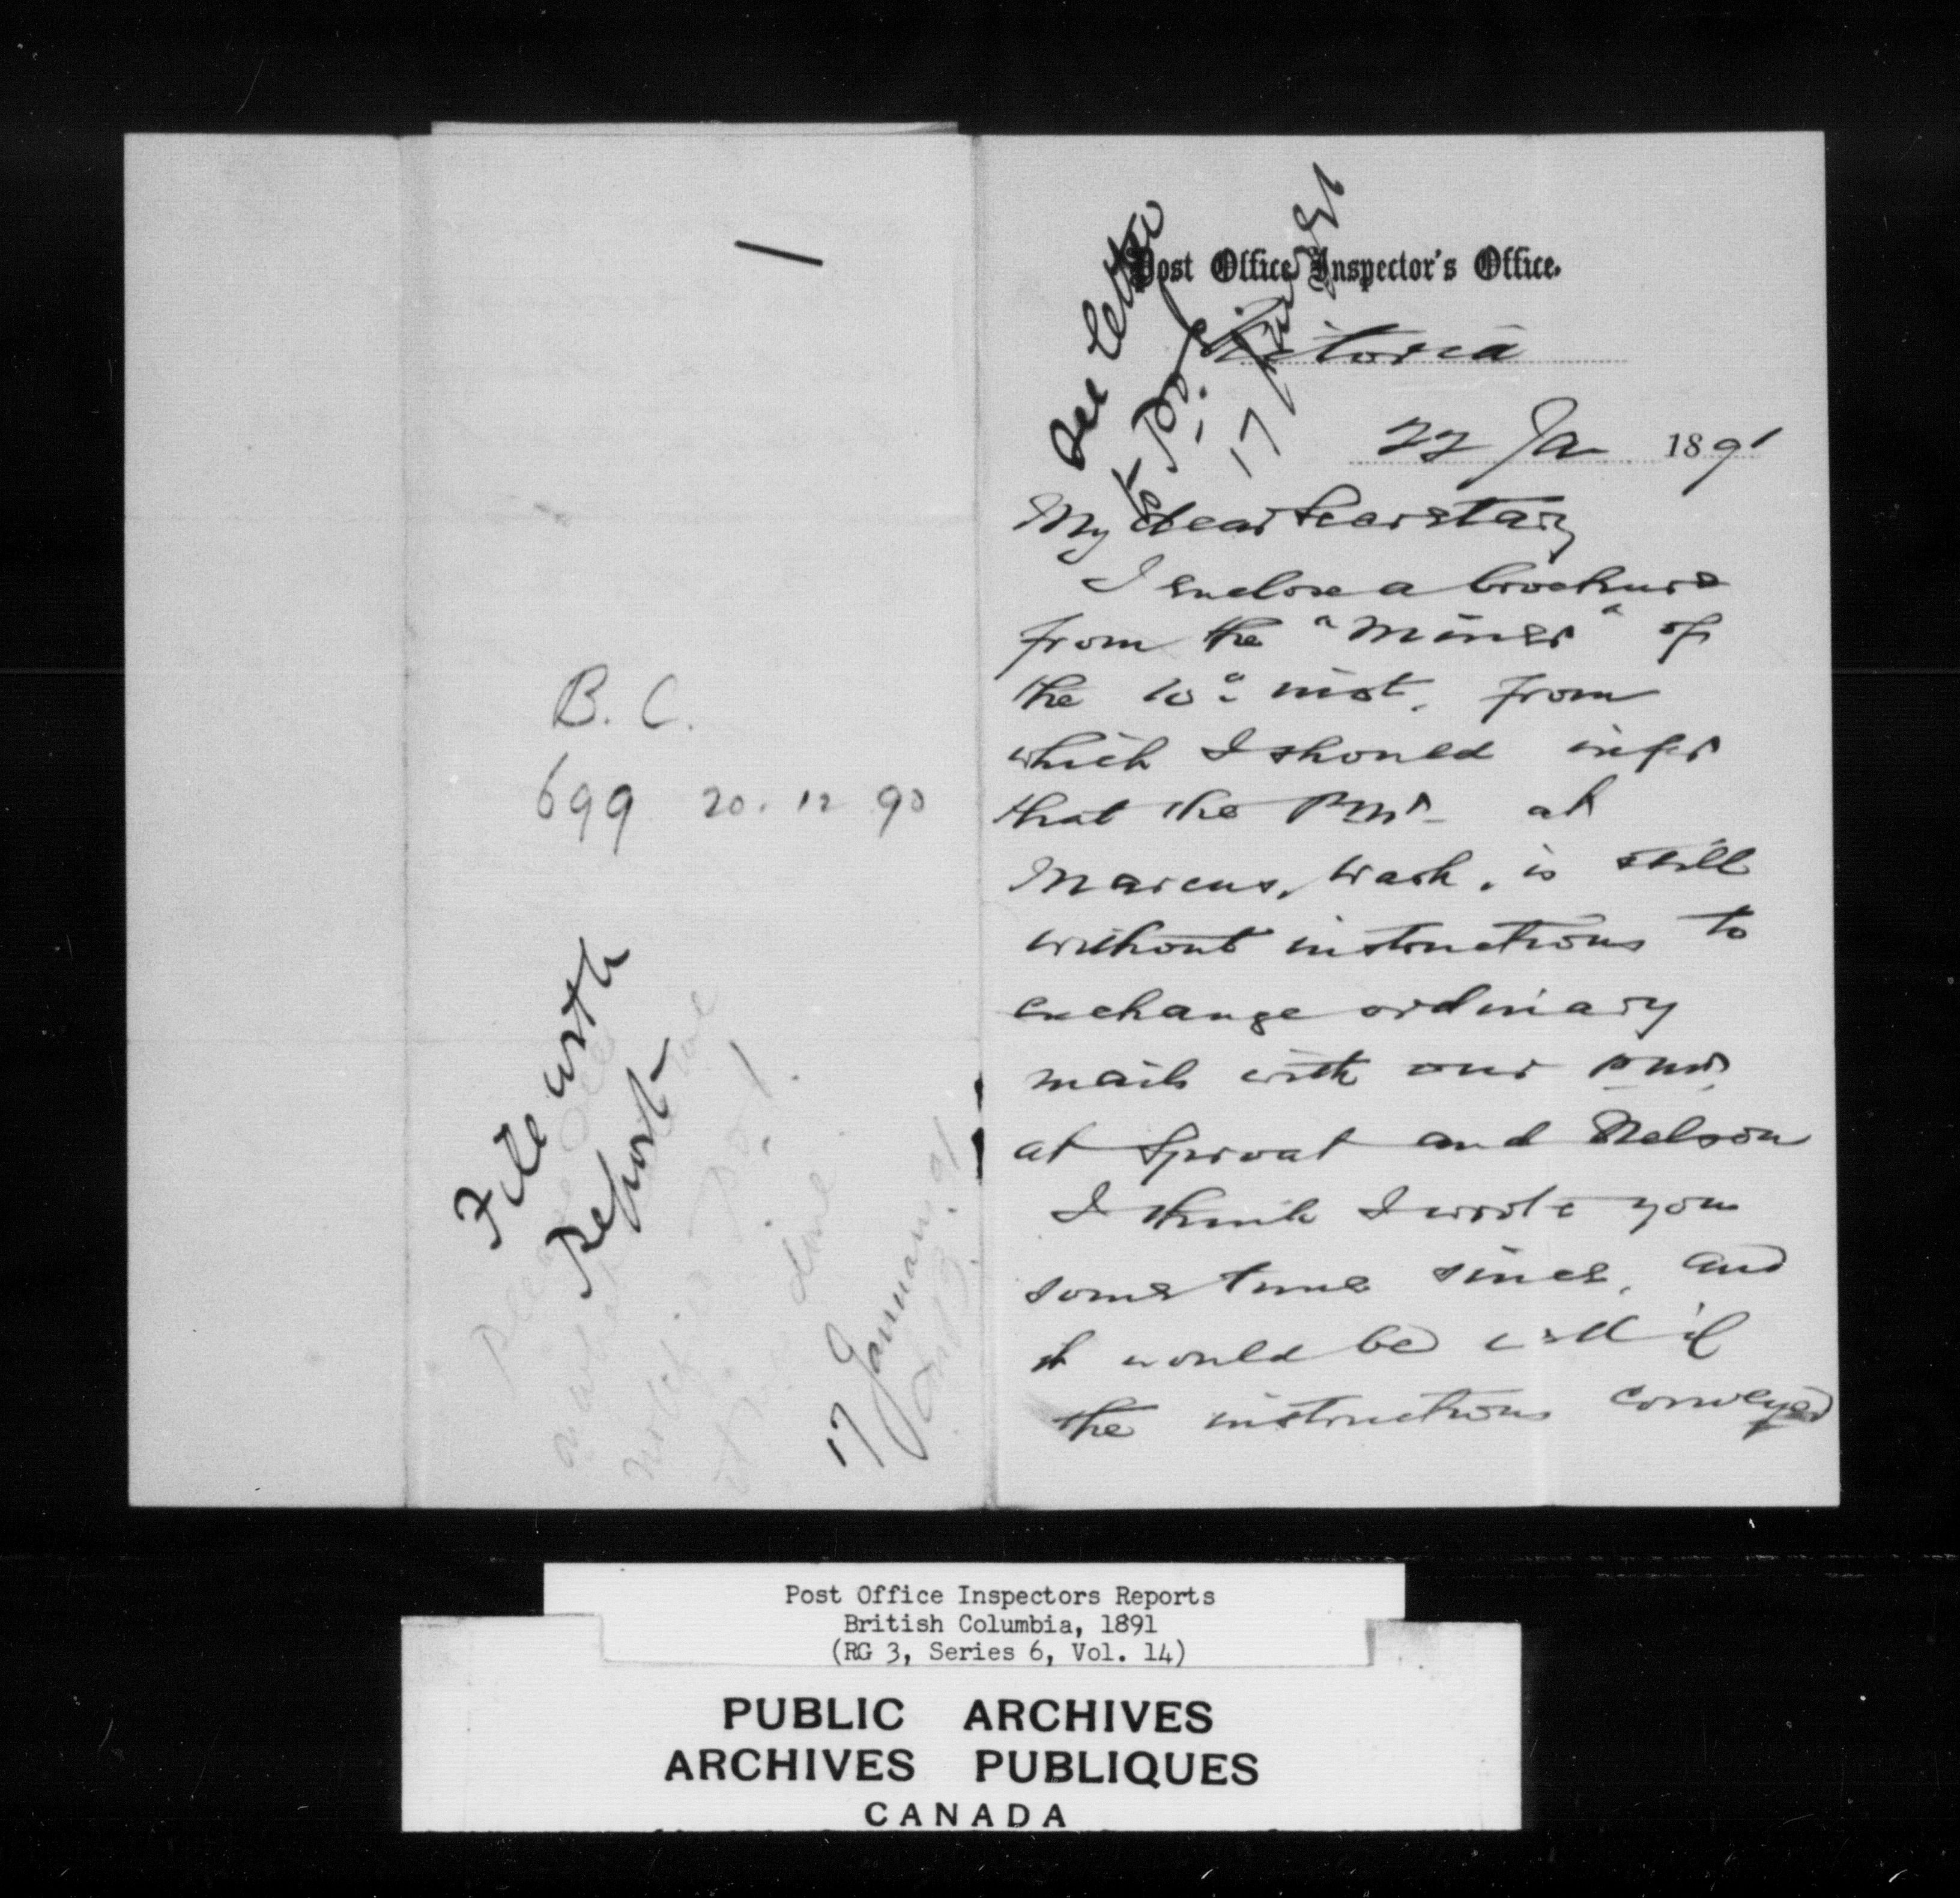 B. C.
699 20. 12 90
File with
Report
17 January 91
See letter
to P.O.I.
17 Jany 91
Post Office Inspector's Office.
Victoria
22 Ja 1891
My dear Secretary
I enclose a brochure
from the "Miner" of
the 10" inst. from
which I should infer
that the PMr at
Marcus, Wash. is still
without instructions to
exchange ordinary
mails with our PMrs
at Sproat and Nelson
I think I wrote you
some time since, and
it would be well if
the instructions conveyed
Post Office Inspectors Reports
British Columbia, 1891
(RG 3, Series 6, Vol. 14)
PUBLIC ARCHIVES
ARCHIVES PUBLIQUES
CANADA